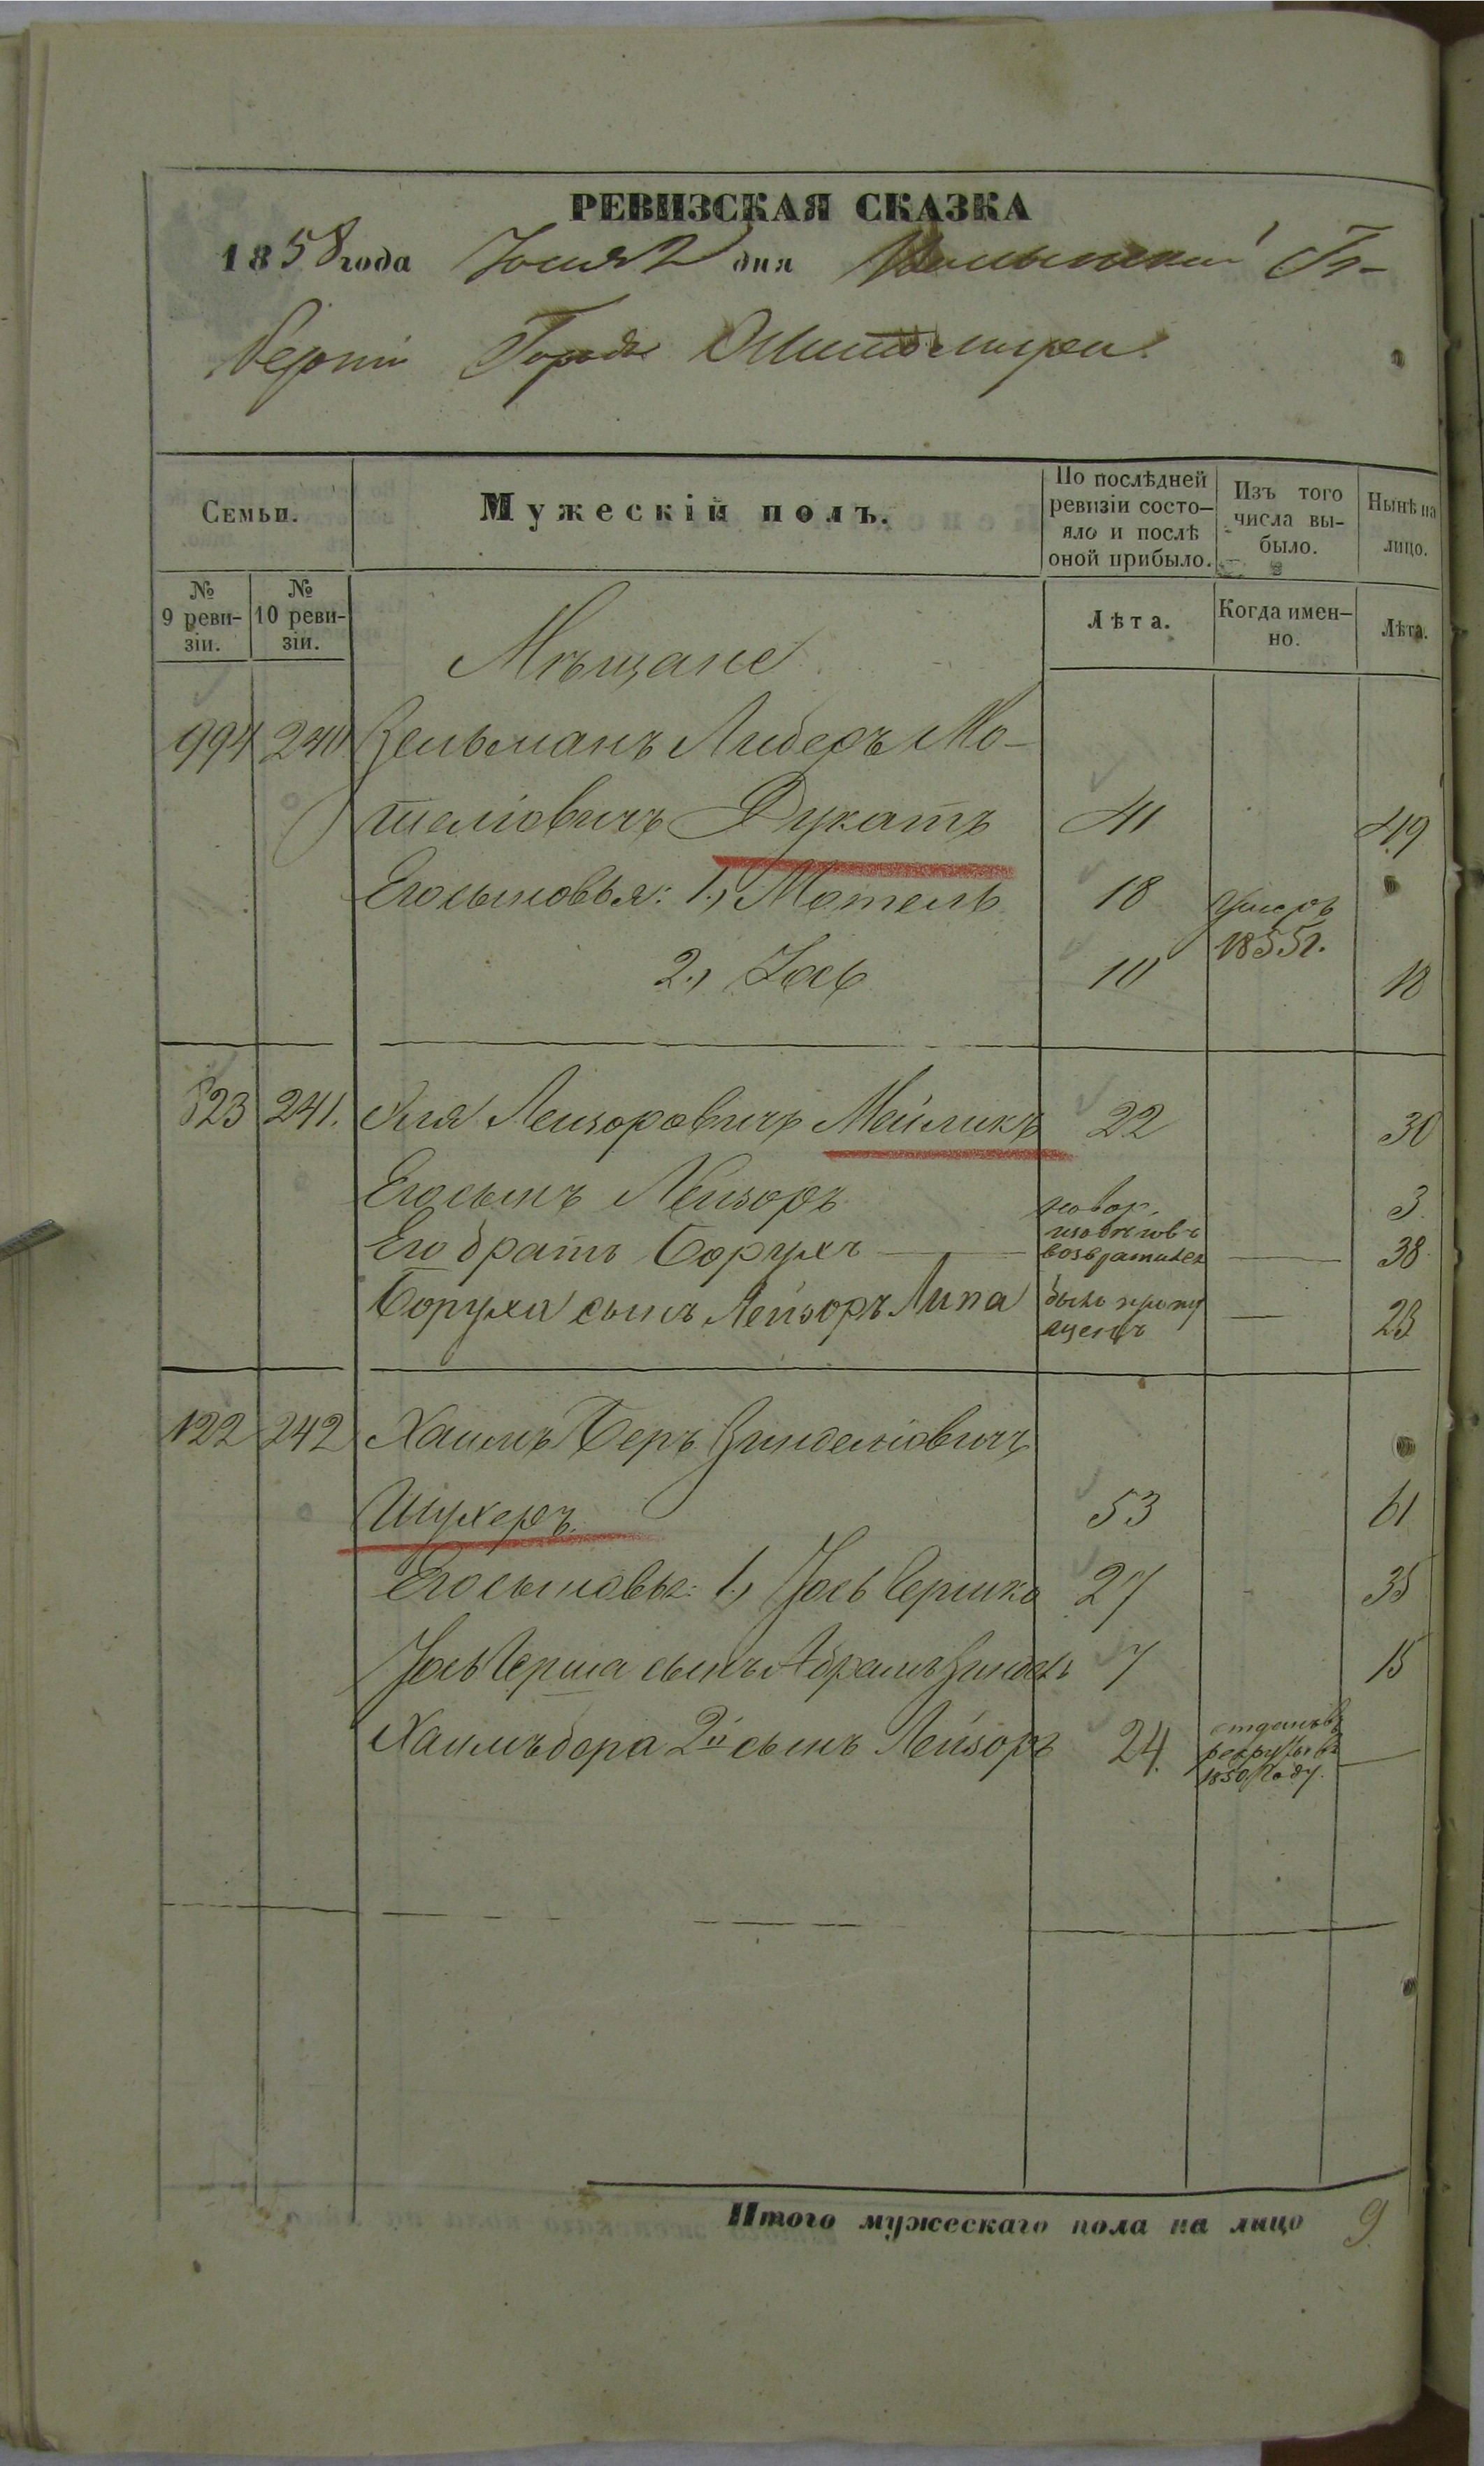 РЕВИЗСКАЯ СКАЗКА
1858 года Іюня 2 дня Волынской Гу-
берніи Города Житомира.
Семьи.
Мужескій полъ.
По послѣдней ревизіи состо-яло и послѣ оной прибыло.
Изъ того числа вы-было.
Нынѣ на лицо.
№ 9 реви-зіи.
№ 10 реви-зіи.
Лѣта.
Когда имен-но.
Лѣта.
Мѣщане
994 240 Зельманъ Либеръ Мо-
теліовичъ Дукатъ 41 49
Его сыновья: 1., Мотель 18 умеръ 1855 г.
2., Іось 10 18
823 241. Эля Лейзоровичъ Мейликъ 22 30
Его сынъ Лейзоръ новор. 3
Его братъ Борухъ изъ бѣговъ возвратился 38
Боруха сынъ Лейзоръ Липа былъ пропущенъ 23
122 242 Хаимъ Беръ Зинделіовичъ
Шухеръ. 53 61
Его сыновья: 1., Іось Гершко 27 35
Іось Герша сынъ Абрамъ Зиндель 7 15
Хаимъ Бера 2й сынъ Лейзоръ 24. отданъ въ рекруты въ 1850 году.
Итого мужескаго пола на лицо 9